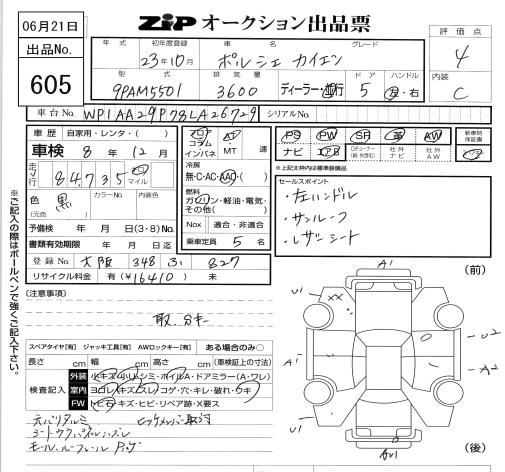 06月21日
ZIP オークション出品票
出品No.
605
評価点
4
内装
C
年式 初年度登録 車名 グレード
23年10月 ポルシェ カイエン
型式 排気量 ディーラー・並行 ドア ハンドル
9PAM5501 3600 5 左・右
車台No. WP1AA29P78LA26729 シリアルNo.
車歴 自家用・レンタ・( )
車検 8年 12月
走行 84,735 キロ マイル
色 黒
(元色)
カラーNo 内装色
予備検 年 月 日(3・8)No.
書類有効期限 年 月 日迄
登録No 大阪 348 827
リサイクル料金 有(¥16410) 未
フロア コラム インパネ
AT・MT 速
冷房
無・C・AC・AAC・( )
燃料
ガソリン・軽油・電気・その他( )
Nox 適合・非適合
乗車定員 5名
PS PW SR 革 AW
ナビ エアB 社外ナビ 社外AW
新車時保証書
※上記太枠内は標準装備品
セールスポイント
・左ハンドル
・サンルーフ
・レザーシート
[注意事項]
スペアタイヤ[有] ジャッキ工具[有] AWロックキー[有] ある場合のみ○
長さ cm 幅 cm 高さ cm (車検証上の寸法)
検査記入
外装 ルキズ・小凹・シミ・ホイルA・ドアミラー(A・ワレ)
室内 ヨゴレ・キズ・スレ・コゲ・穴・キレ・破れ・ウキ
FW トビ石・キズ・ヒビ・リペア跡・X要ス
※ご記入の際はボールペンで強くご記入下さい。
(前)
A1
U1
XX
U2
A1
A2
U1
(後)